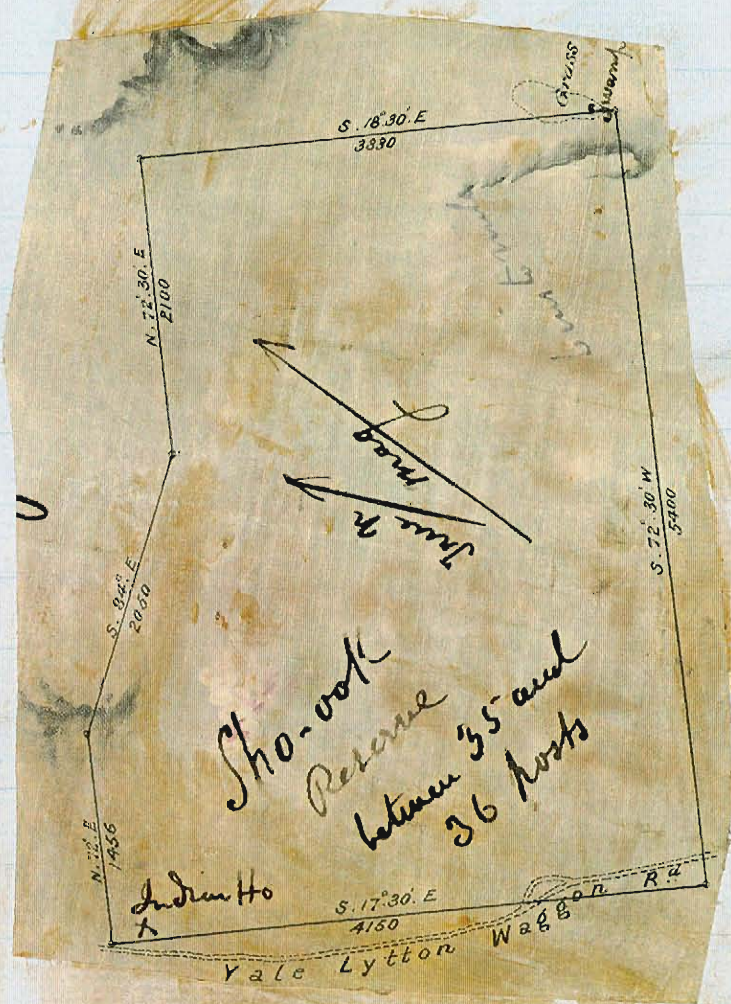 Grass
Swamp
S. 18°30'. E
3830
N. 72°30'. E
2100
Mag
True N
S. 72°30' W
5400
S. 84° E
2050
Sho-ook
Reserve
between 35 and
36 posts
N. 72° E
1456
Indian Ho
X
S. 17°30'. E
4150
Yale Lytton Waggon Rd